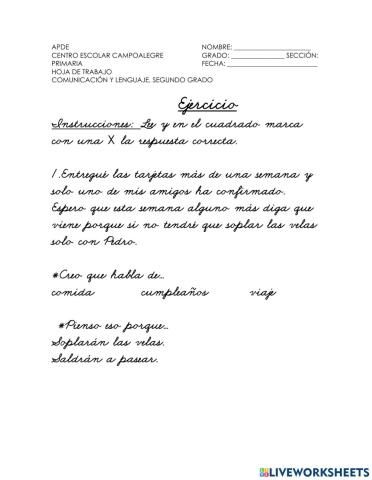 APDE NOMBRE: ____________________
CENTRO ESCOLAR CAMPOALEGRE GRADO: ______________ SECCIÓN:
PRIMARIA FECHA: ________________________
HOJA DE TRABAJO
COMUNICACIÓN Y LENGUAJE, SEGUNDO GRADO
Ejercicio
Instrucciones: Lee y en el cuadrado marca
con una X la respuesta correcta.
1. Entregué las tarjetas más de una semana y
solo uno de mis amigos ha confirmado.
Espero que esta semana alguno más diga que
viene porque si no tendré que soplar las velas
solo con Pedro.
*Creo que habla de...
comida cumpleaños viaje
*Pienso eso porque...
Soplarán las velas.
Saldrán a pasear.
LIVEWORKSHEETS